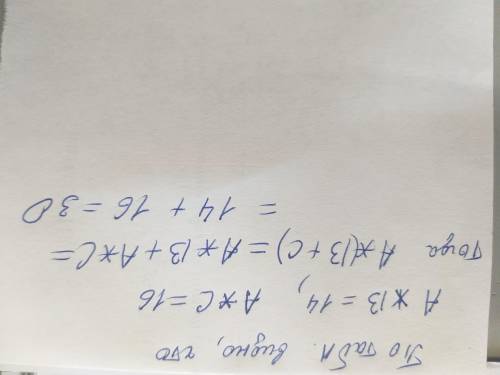 По табл. видно, что
A * B = 14, A * C = 16
Тогда A * (B + C) = A * B + A * C =
= 14 + 16 = 30